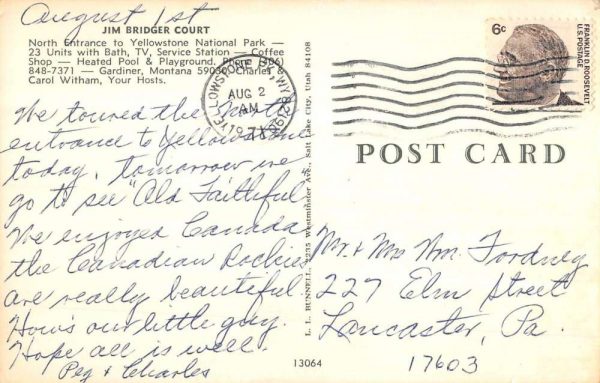 August 1st
JIM BRIDGER COURT
North Entrance to Yellowstone National Park —
23 Units with Bath, TV, Service Station — Coffee
Shop — Heated Pool & Playground. Phone (406)
848-7371 — Gardiner, Montana 59030. Charles &
Carol Witham, Your Hosts.
We toured the North
entrance to Yellowstone
today, tomorrow we
go to see "Old Faithful"
We enjoyed Canada
the Canadian Rockies
are really beautiful.
How's our little guy.
Hope all is well.
Peg & Charles
YELLOWSTONE
AUG 2
AM
L. L. BUNNELL, Westminster Ave., Salt Lake City, Utah 84108
13064
6c
FRANKLIN D. ROOSEVELT
U.S. POSTAGE
POST CARD
Mr. & Mrs Wm. Fordney
227 Elm Street
Lancaster, Pa.
17603